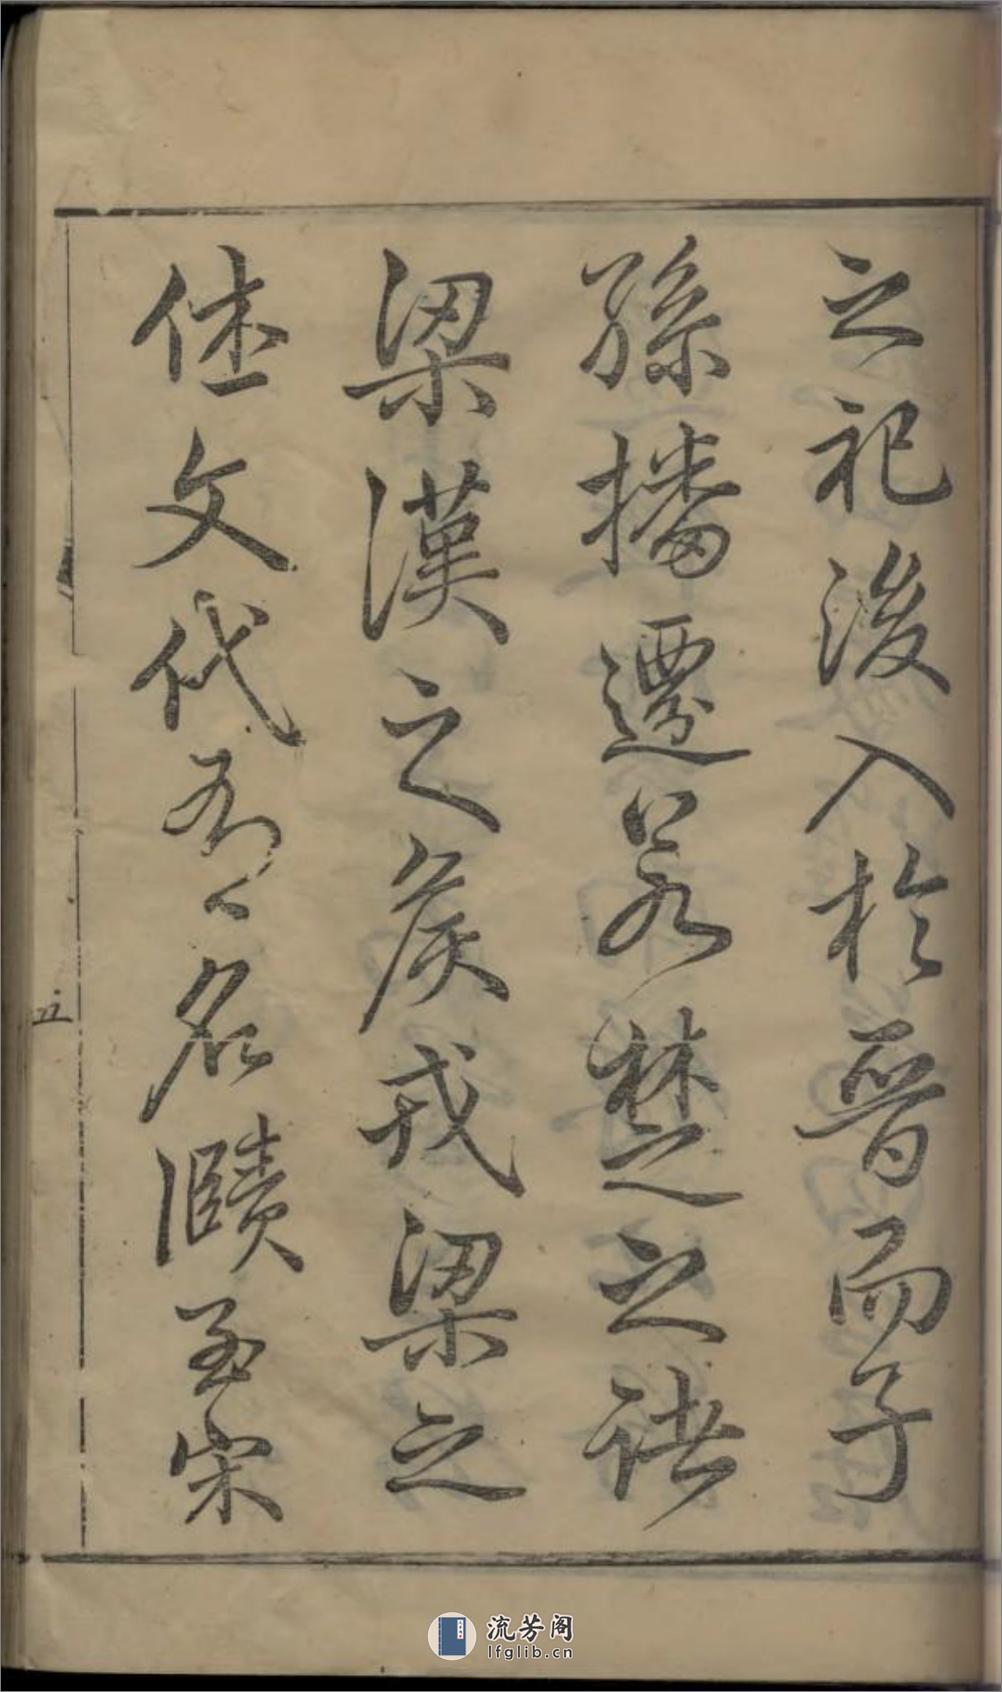 之祀後入於晉而子
孫播遷若楚之諸
梁漢之侯戎梁之
休文代有名賾至宋
五
流芳阁
lfglib.cn